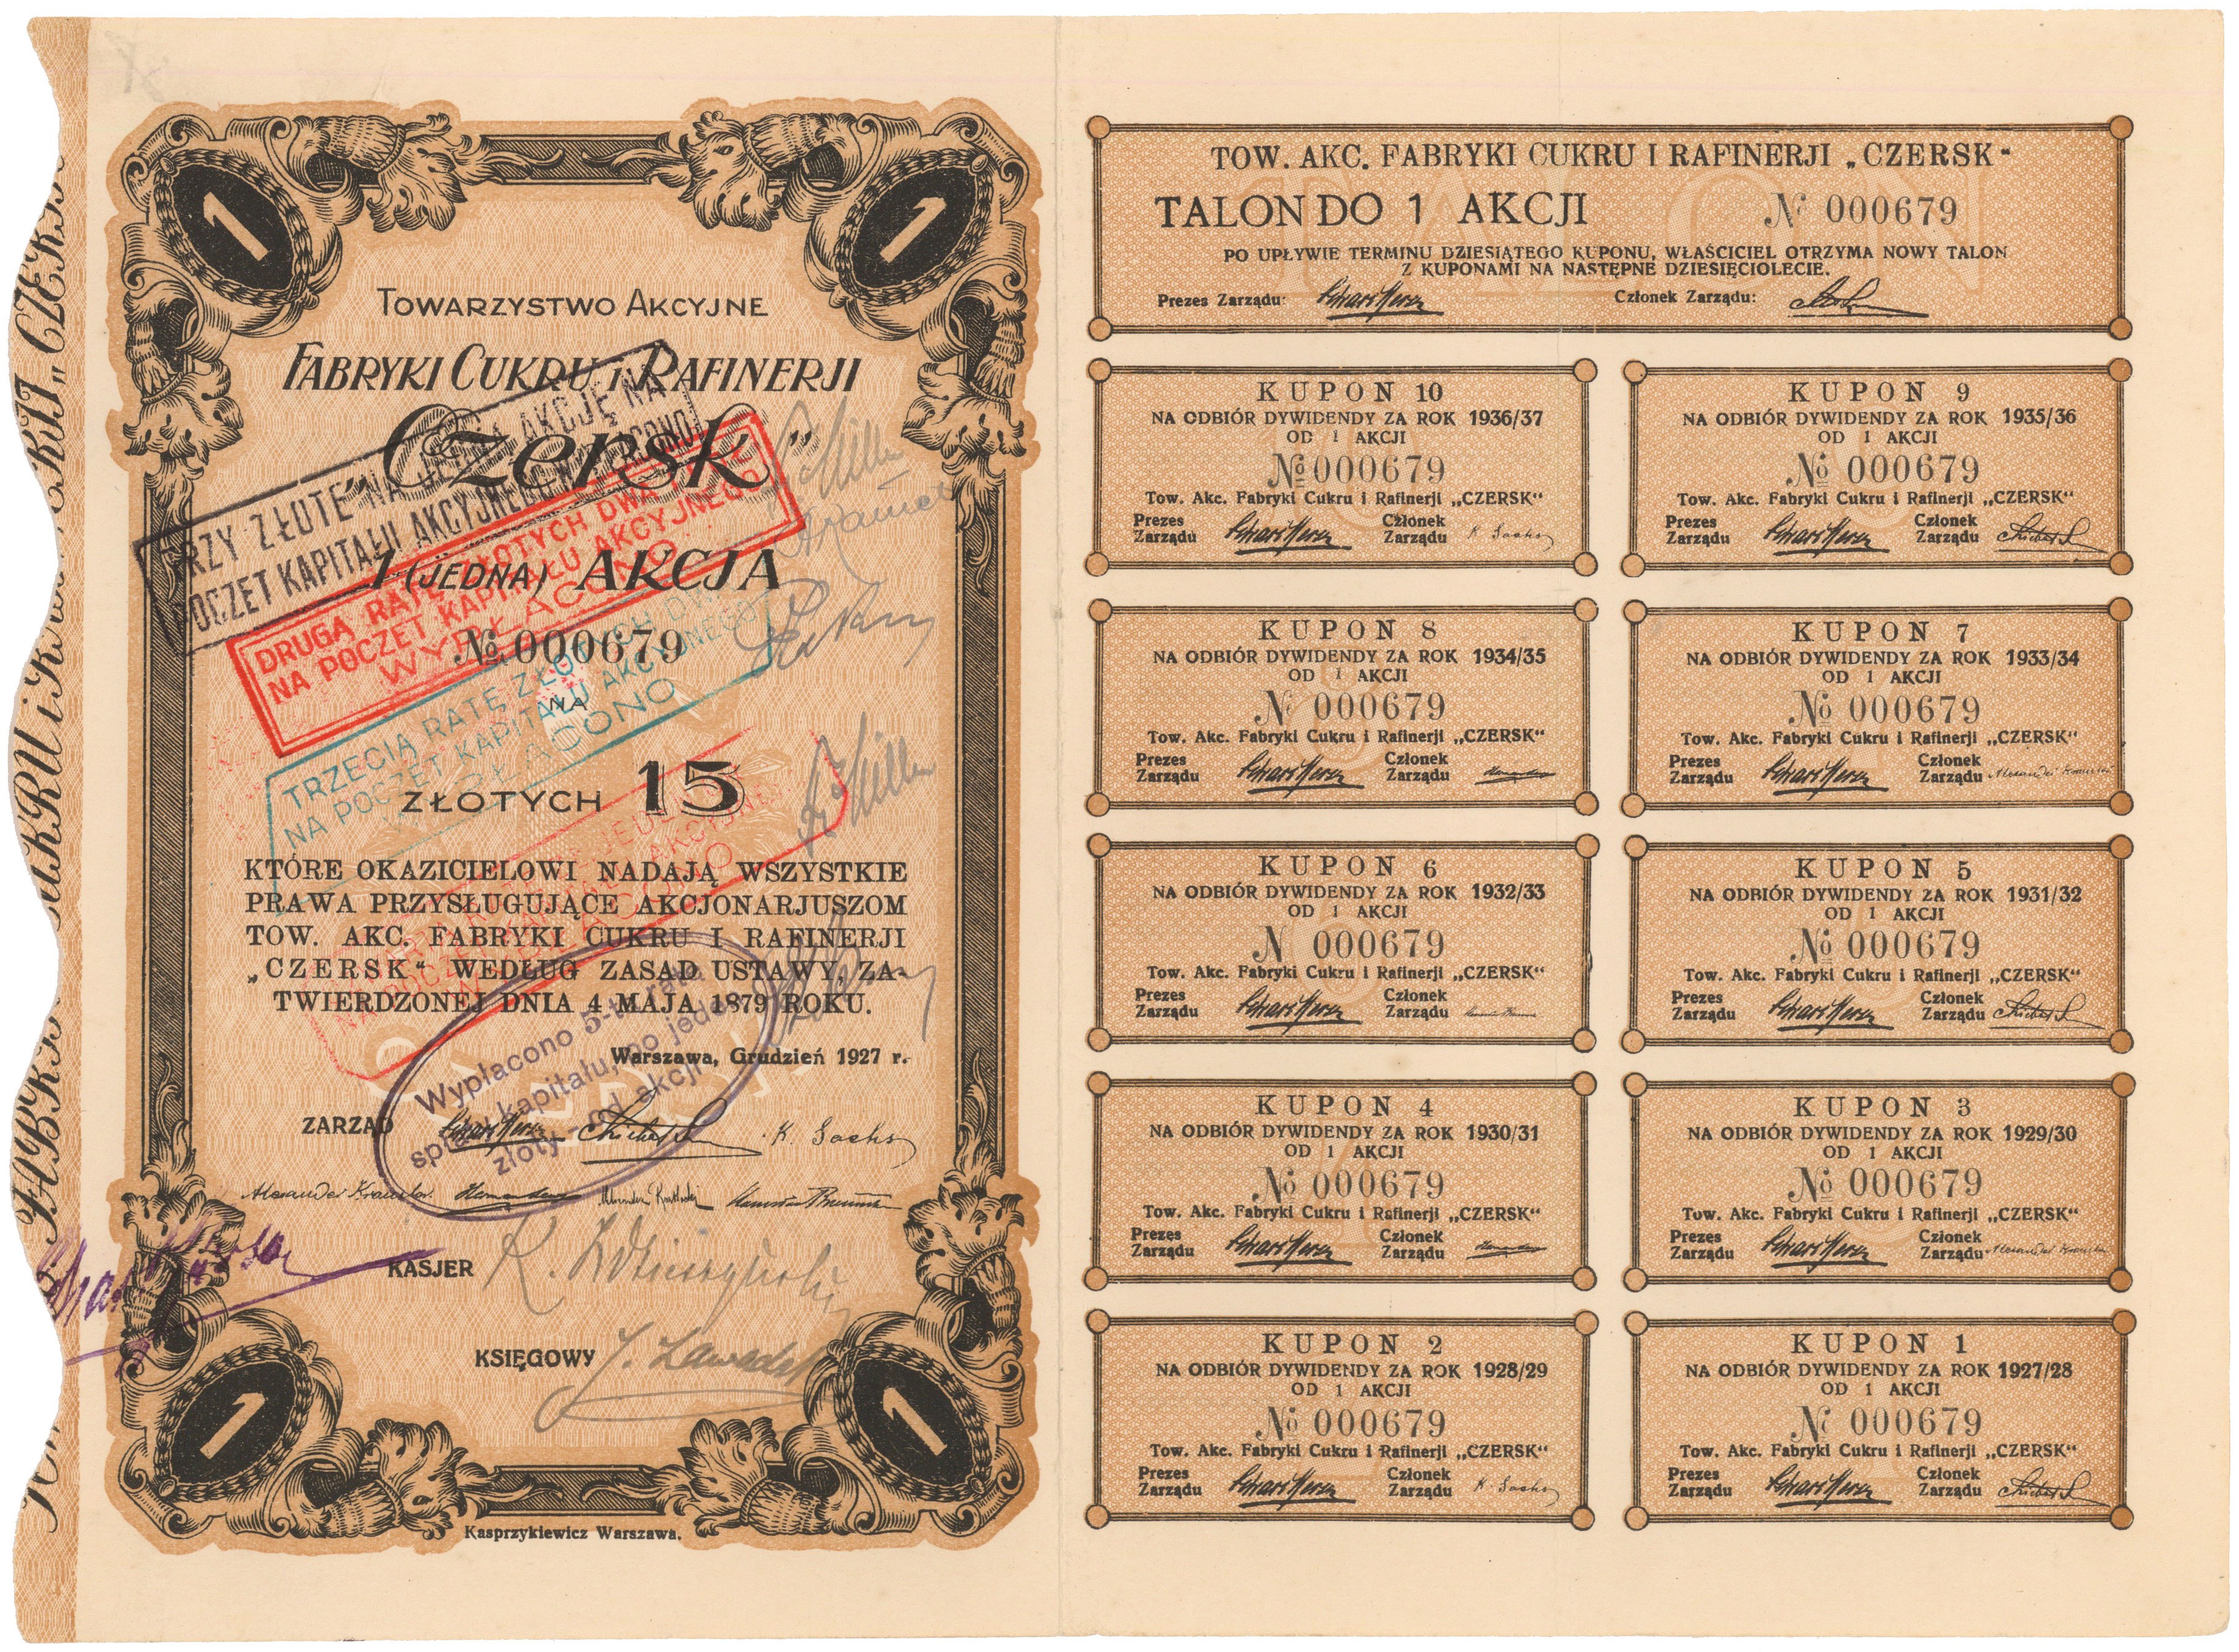 TOWARZYSTWO AKCYJNE
FABRYKI CUKRU I RAFINERJI
„Czersk”
1 (JEDNA) AKCJA
№ 000679
NA
ZŁOTYCH 15
KTÓRE OKAZICIELOWI NADAJĄ WSZYSTKIE
PRAWA PRZYSŁUGUJĄCE AKCJONARJUSZOM
TOW. AKC. FABRYKI CUKRU I RAFINERJI
„CZERSK“ WEDŁUG ZASAD USTAWY, ZA-
TWIERDZONEJ DNIA 4 MAJA 1879 ROKU.
Warszawa, Grudzień 1927 r.
ZARZĄD
K. Sachs
KASJER
KSIĘGOWY
Kasprzykiewicz Warszawa.
1
1
1
1
TRZY ZŁOTE NA JEDNĄ AKCJĘ NA
POCZET KAPITAŁU AKCYJNEGO WYPŁACONO
DRUGĄ RATĘ ZŁOTYCH DWA
NA POCZET KAPITAŁU AKCYJNEGO
WYPŁACONO
TRZECIĄ RATĘ ZŁOTYCH DWA
NA POCZET KAPITAŁU AKCYJNEGO
WYPŁACONO
Wypłacono 5-tą ratę
spłaty kapitału, po jednym
złoty od akcji
TOW. AKC. FABRYKI CUKRU I RAFINERJI „CZERSK“
TALON DO 1 AKCJI № 000679
PO UPŁYWIE TERMINU DZIESIĄTEGO KUPONU, WŁAŚCICIEL OTRZYMA NOWY TALON
Z KUPONAMI NA NASTĘPNE DZIESIĘCIOLECIE.
Prezes Zarządu: Członek Zarządu:
KUPON 10
NA ODBIÓR DYWIDENDY ZA ROK 1936/37
OD 1 AKCJI
№ 000679
Tow. Akc. Fabryki Cukru i Rafinerji „CZERSK“
Prezes Członek
Zarządu Zarządu K. Sachs
KUPON 9
NA ODBIÓR DYWIDENDY ZA ROK 1935/36
OD 1 AKCJI
№ 000679
Tow. Akc. Fabryki Cukru i Rafinerji „CZERSK“
Prezes Członek
Zarządu Zarządu
KUPON 8
NA ODBIÓR DYWIDENDY ZA ROK 1934/35
OD 1 AKCJI
№ 000679
Tow. Akc. Fabryki Cukru i Rafinerji „CZERSK“
Prezes Członek
Zarządu Zarządu
KUPON 7
NA ODBIÓR DYWIDENDY ZA ROK 1933/34
OD 1 AKCJI
№ 000679
Tow. Akc. Fabryki Cukru i Rafinerji „CZERSK“
Prezes Członek
Zarządu Zarządu
KUPON 6
NA ODBIÓR DYWIDENDY ZA ROK 1932/33
OD 1 AKCJI
№ 000679
Tow. Akc. Fabryki Cukru i Rafinerji „CZERSK“
Prezes Członek
Zarządu Zarządu
KUPON 5
NA ODBIÓR DYWIDENDY ZA ROK 1931/32
OD 1 AKCJI
№ 000679
Tow. Akc. Fabryki Cukru i Rafinerji „CZERSK“
Prezes Członek
Zarządu Zarządu
KUPON 4
NA ODBIÓR DYWIDENDY ZA ROK 1930/31
OD 1 AKCJI
№ 000679
Tow. Akc. Fabryki Cukru i Rafinerji „CZERSK“
Prezes Członek
Zarządu Zarządu
KUPON 3
NA ODBIÓR DYWIDENDY ZA ROK 1929/30
OD 1 AKCJI
№ 000679
Tow. Akc. Fabryki Cukru i Rafinerji „CZERSK“
Prezes Członek
Zarządu Zarządu
KUPON 2
NA ODBIÓR DYWIDENDY ZA ROK 1928/29
OD 1 AKCJI
№ 000679
Tow. Akc. Fabryki Cukru i Rafinerji „CZERSK“
Prezes Członek
Zarządu Zarządu K. Sachs
KUPON 1
NA ODBIÓR DYWIDENDY ZA ROK 1927/28
OD 1 AKCJI
№ 000679
Tow. Akc. Fabryki Cukru i Rafinerji „CZERSK“
Prezes Członek
Zarządu Zarządu